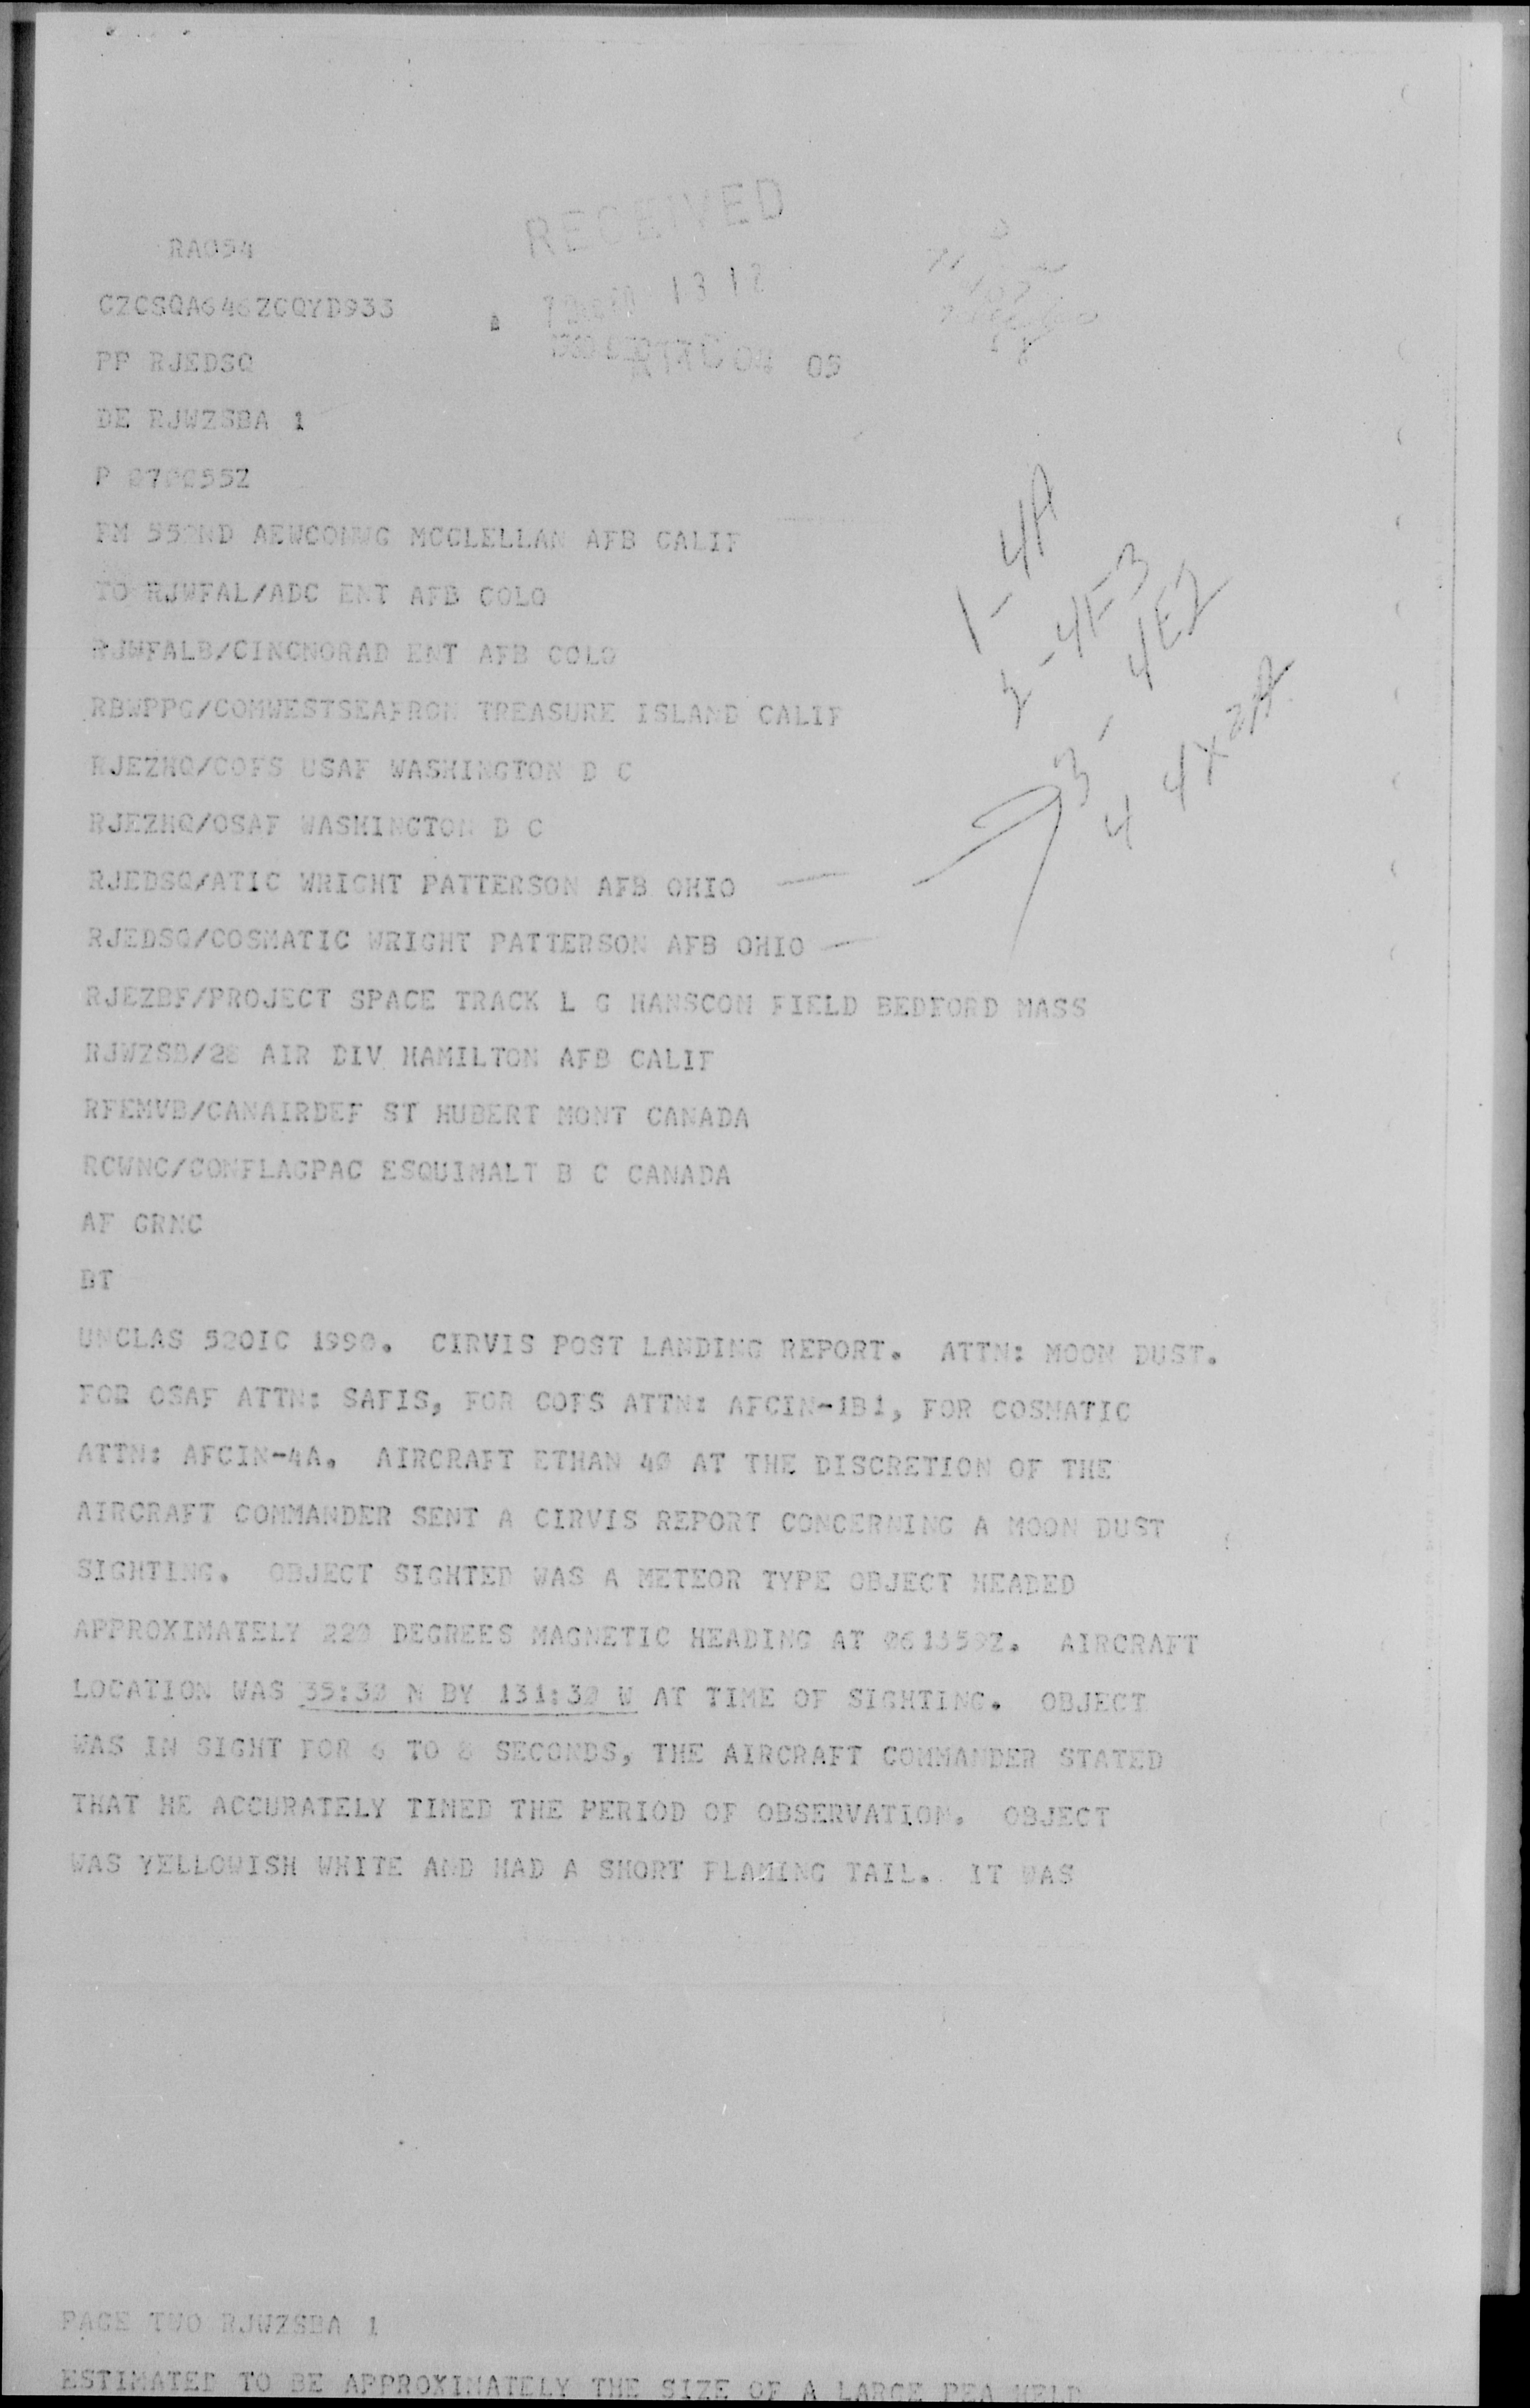 RECEIVED
RA054
13 12
CZCSQA646ZCQYD933
PP RJEDSQ
05
DE RJWZSBA 1
P 070055Z
FM 552ND AEWCONWG MCCLELLAN AFB CALIF
1-4A
TO RJWFAL/ADC ENT AFB COLO
2-4F-3
RJWFALB/CINCNORAD ENT AFB COLO
3-4E2
RBWPPG/COMWESTSEAFRON TREASURE ISLAND CALIF
4 4X2A
RJEZHQ/COFS USAF WASHINGTON D C
RJEZHQ/OSAF WASHINGTON D C
RJEDSQ/ATIC WRIGHT PATTERSON AFB OHIO
RJEDSQ/COSMATIC WRIGHT PATTERSON AFB OHIO
RJEZBF/PROJECT SPACE TRACK L G HANSCOM FIELD BEDFORD MASS
RJWZSB/28 AIR DIV HAMILTON AFB CALIF
RFEMVB/CANAIRDEF ST HUBERT MONT CANADA
RCWNC/CONFLAGPAC ESQUIMALT B C CANADA
AF GRNC
BT
UNCLAS 52OIC 1990. CIRVIS POST LANDING REPORT. ATTN: MOON DUST.
FOR OSAF ATTN: SAFIS, FOR COFS ATTN: AFCIN-1B1, FOR COSMATIC
ATTN: AFCIN-4A. AIRCRAFT ETHAN 40 AT THE DISCRETION OF THE
AIRCRAFT COMMANDER SENT A CIRVIS REPORT CONCERNING A MOON DUST
SIGHTING. OBJECT SIGHTED WAS A METEOR TYPE OBJECT HEADED
APPROXIMATELY 220 DEGREES MAGNETIC HEADING AT 061359Z. AIRCRAFT
LOCATION WAS 35:30 N BY 131:30 W AT TIME OF SIGHTING. OBJECT
WAS IN SIGHT FOR 6 TO 8 SECONDS, THE AIRCRAFT COMMANDER STATED
THAT HE ACCURATELY TIMED THE PERIOD OF OBSERVATION. OBJECT
WAS YELLOWISH WHITE AND HAD A SHORT FLAMING TAIL. IT WAS
PAGE TWO RJWZSBA 1
ESTIMATED TO BE APPROXIMATELY THE SIZE OF A LARGE PEA HELD